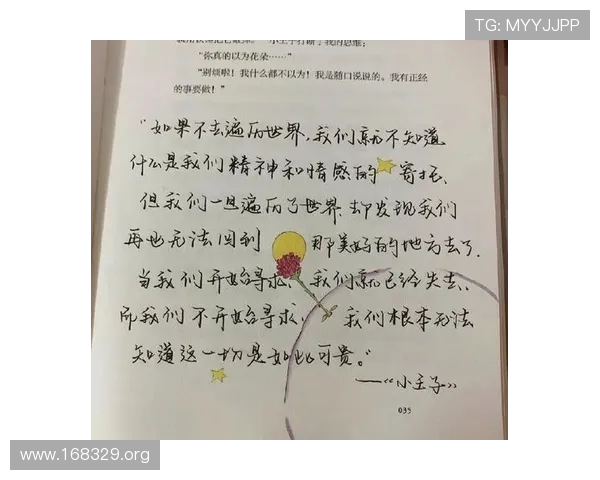 TG: MYYJJPP
“你真的以为花朵……”
“别烦啦！我什么都不以为！我是随口说说的。我有正经
的事要做！”
“如果不去遍历世界，我们就不知道
什么是我们精神和情感的寄托，
但我们一旦遍历了世界，却发现我们
再也无法回到那美妙的地方去了。
当我们开始寻求，我们就已经失去，
而我们不开始寻求，我们根本无法
知道这一切是如此可贵。”
——“小王子”
035
www.168329.org